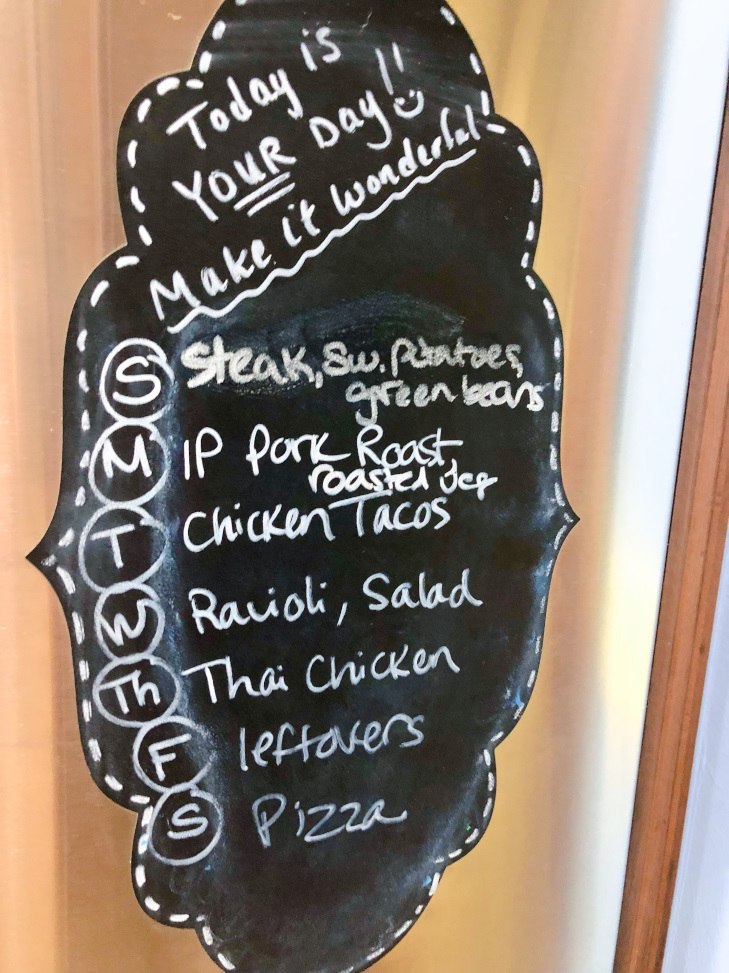 Today is
YOUR Day!! 
Make it wonderful!
S Steak, Sw. Potatoes,
green beans
M IP Pork Roast,
roasted veg
T Chicken Tacos
W Ravioli, Salad
Th Thai Chicken
F leftovers
S Pizza